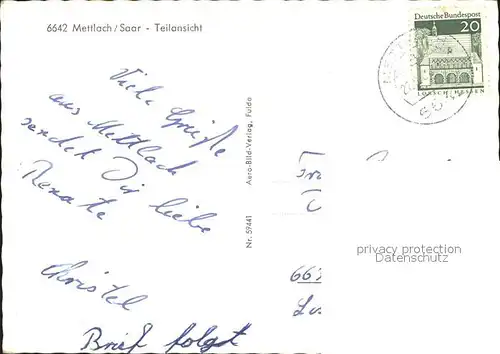 6642 Mettlach/Saar - Teilansicht
Deutsche Bundespost
20
LORSCH/HESSEN
Viele Grüße
aus Mettlach
sendet Dir liebe
Renate
Christel
Brief folgt
Aero-Bild-Verlag, Fulda
Nr. 59441
privacy protection
Datenschutz